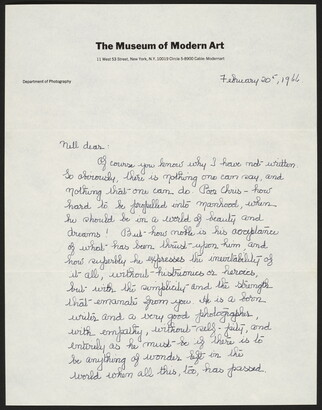 The Museum of Modern Art
11 West 53 Street, New York, N.Y. 10019 Circle 5-8900 Cable: Modernart
Department of Photography
February 20th, 1966
Nell dear:
Of course you know why I have not written.
So obviously, there is nothing one can say, and
nothing that one can do. Poor Chris - how
hard to be propelled into manhood, when
he should be in a world of beauty and
dreams! But how noble is his acceptance
of what has been thrust upon him, and
how superbly he expresses the inevitability of
it all, without histrionics or heroics,
but with the simplicity and the strength
that emanate from you. He is a born
writer and a very good photographer,
with empathy, without self-pity, and
entirely as he must be if there is to
be anything of wonder left in the
world when all this, too, has passed.